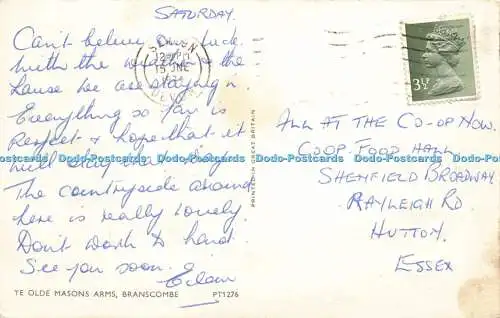 SATURDAY.
Can't believe our luck
with the weather & the
house we are staying in.
Everything so far is
Perfect & hope that it
will stay
The countryside around
here is really lovely.
Don't work to hard.
See you soon.
YE OLDE MASONS ARMS, BRANSCOMBE PT1276
PRINTED IN GREAT BRITAIN
SEATON
15 JNE
DEVON
3½P
ALL AT THE CO-OP NOW.
CO-OP FOOD HALL
SHENFIELD BROADWAY
RAYLEIGH RD
HUTTON.
ESSEX
Dodo-Postcards Dodo-Postcards Dodo-Postcards Dodo-Postcards Dodo-Postcards Dodo-Postcards